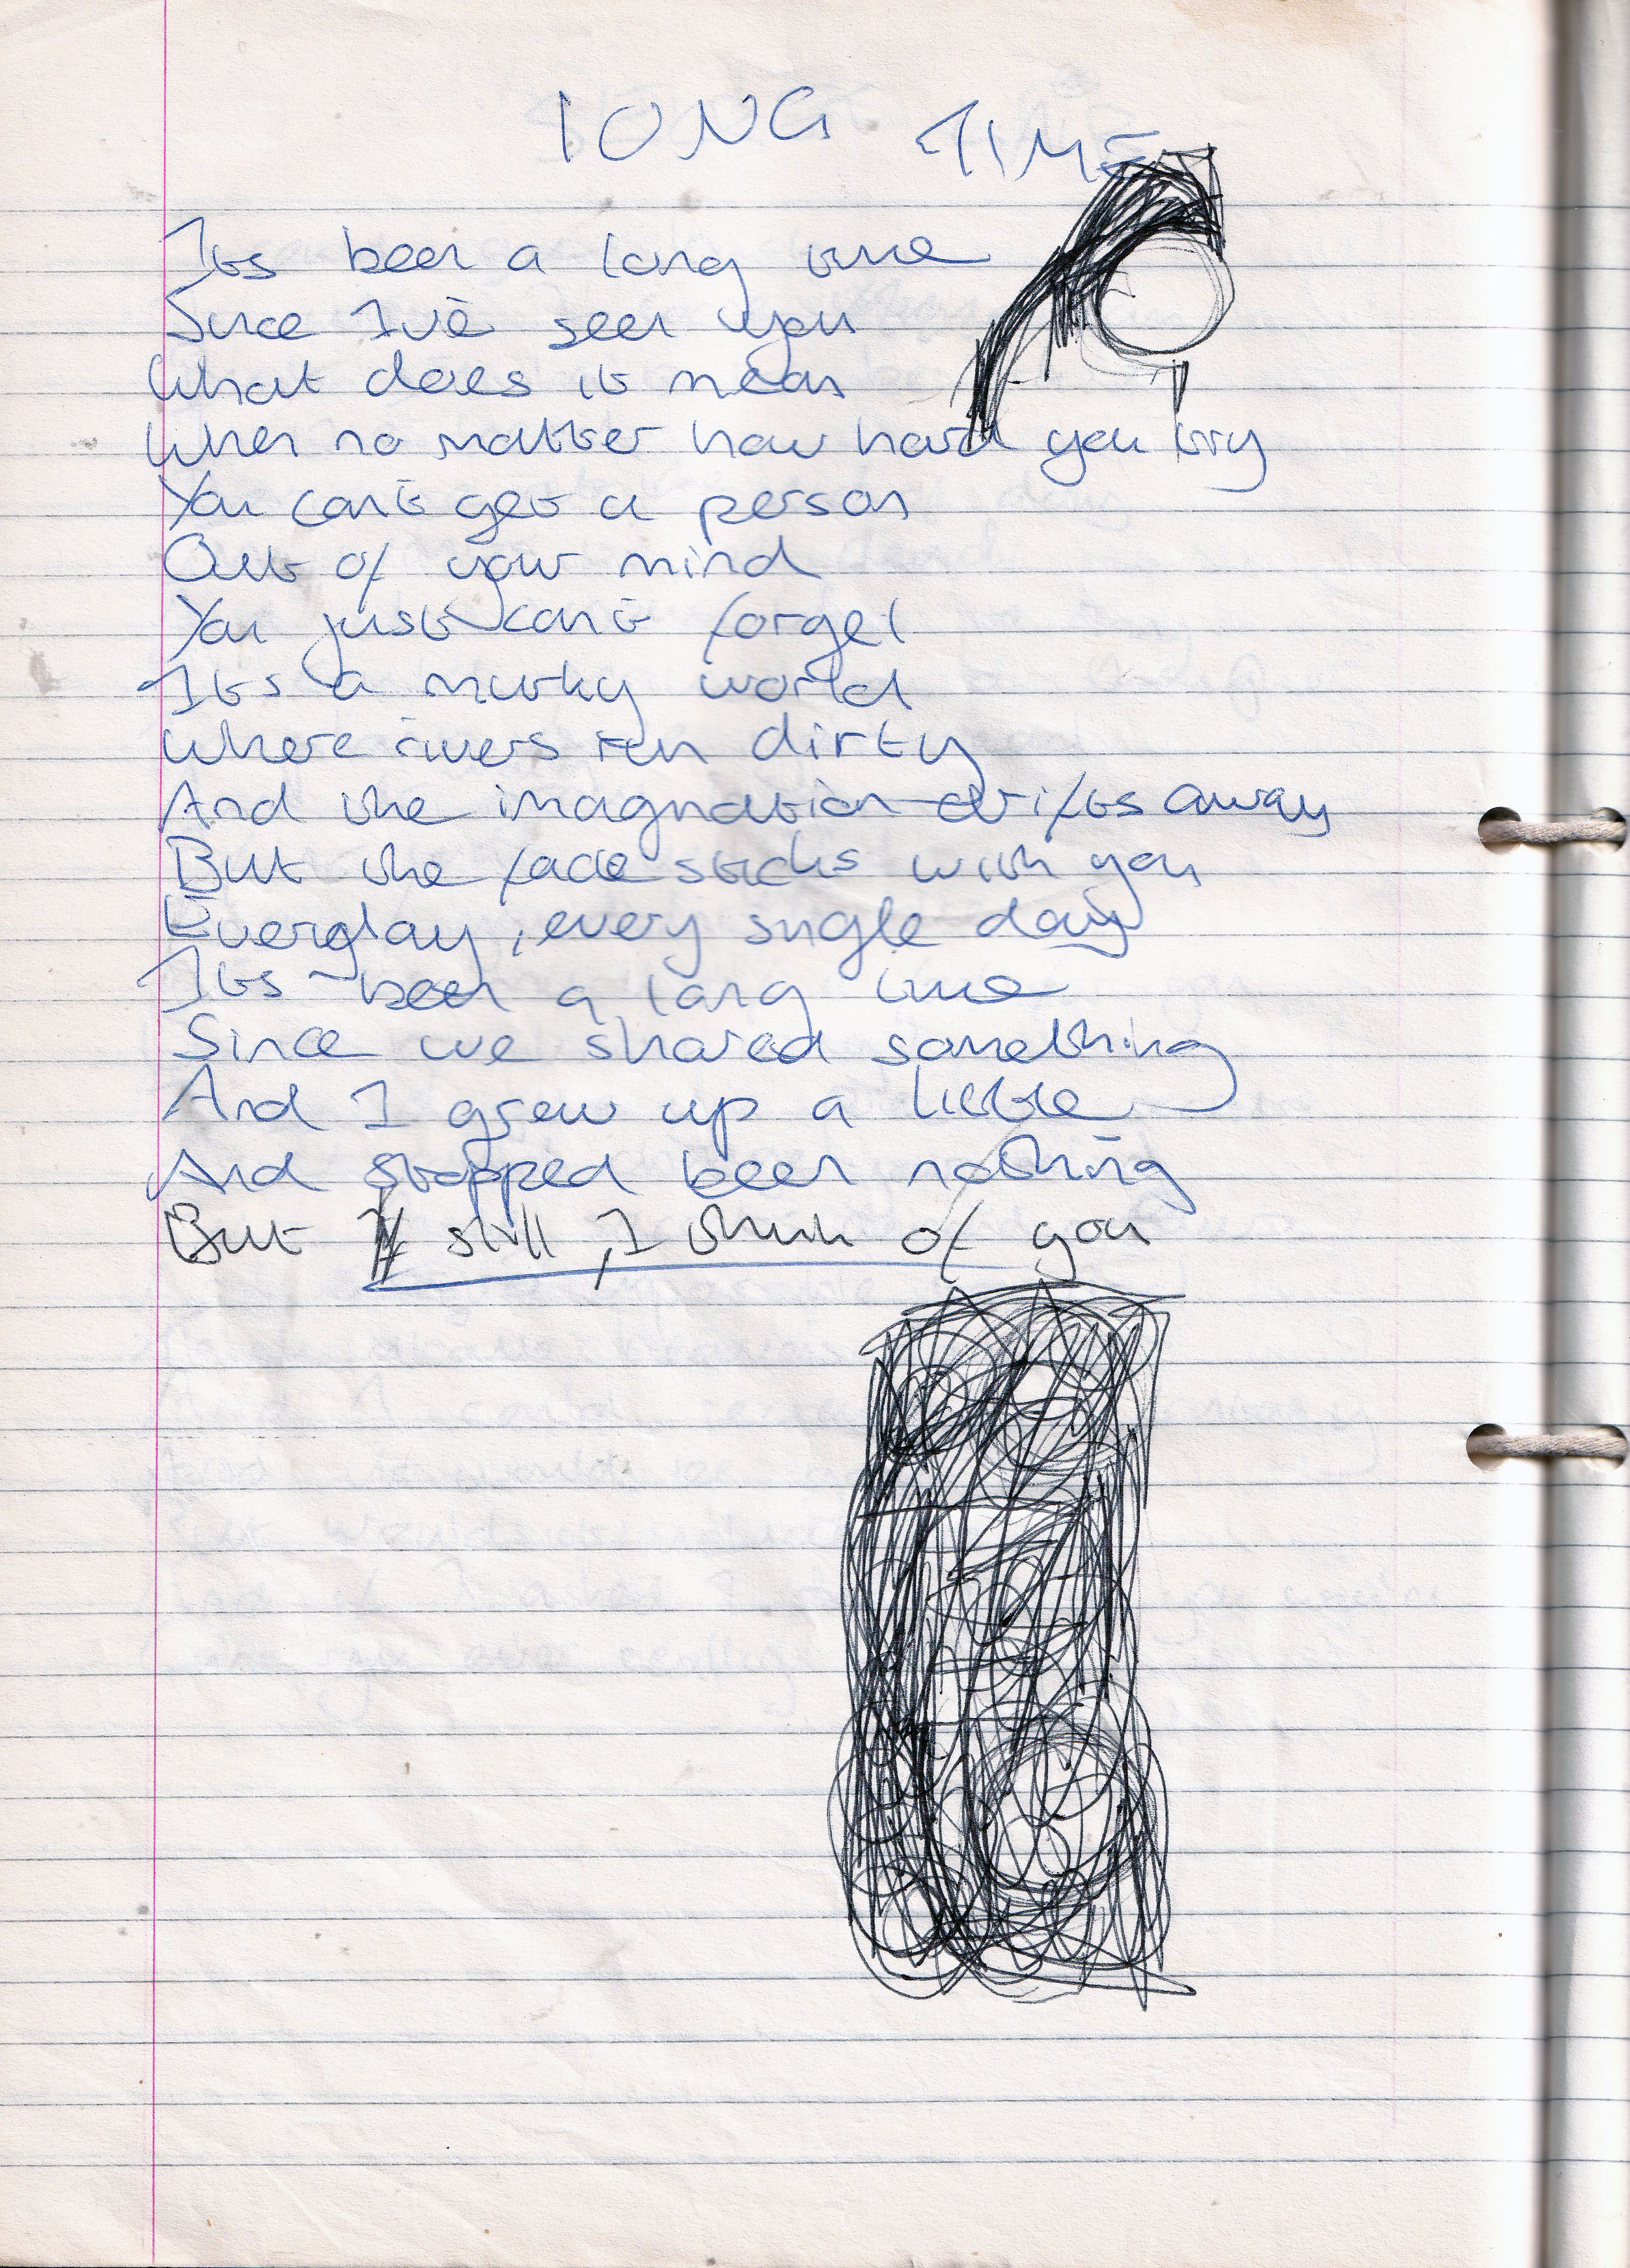 LONG TIME
Its been a long time
Since I've seen you
What does it mean
When no matter how hard you try
You can't get a person
Out of your mind
You just can't forget
Its a murky world
Where rivers run dirty
And the imagnation drifts away
But the face sticks with you
Everyday, every single day
Its been a long time
Since we shared something
And I grew up a little
And stopped been nothing
But still, I think of you